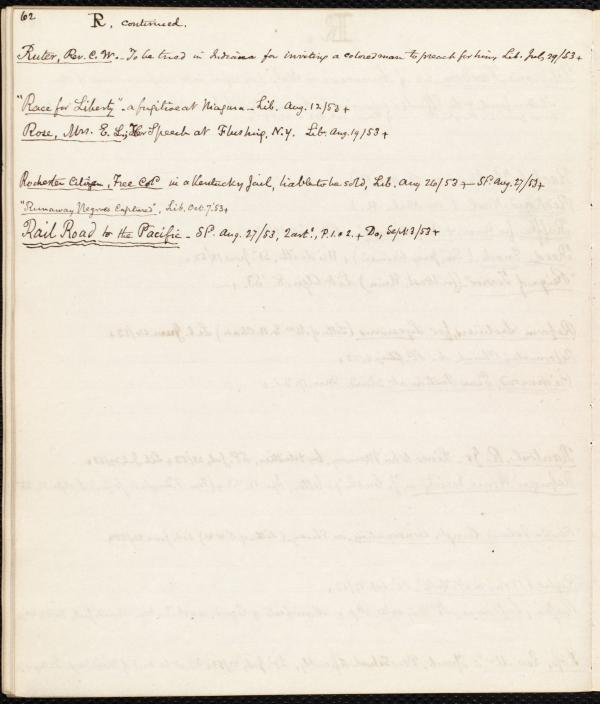 62
R, continued.
Ruter, Rev. C. W. - To be tried in Indiana for inviting a colored man to preach for him, Lib. July 29/53 +
"Race for Liberty" - a fugitive at Niagara - Lib. Aug. 12/53 +
Rose, Mrs. E. L., Her Speech at Flushing, N.Y. Lib. Aug. 19/53 +
Rochester Citizen, Free Cold in a Kentucky Jail, liable to be sold, Lib. Aug 26/53 + - St. Aug. 27/53 +
"Runaway Negroes Captured", Lib. Oct. 7.53 +
Rail Road to the Pacific - St. Aug. 27/53, 2 arts., P. 1. & 2. + Do, Sept. 3/53 +